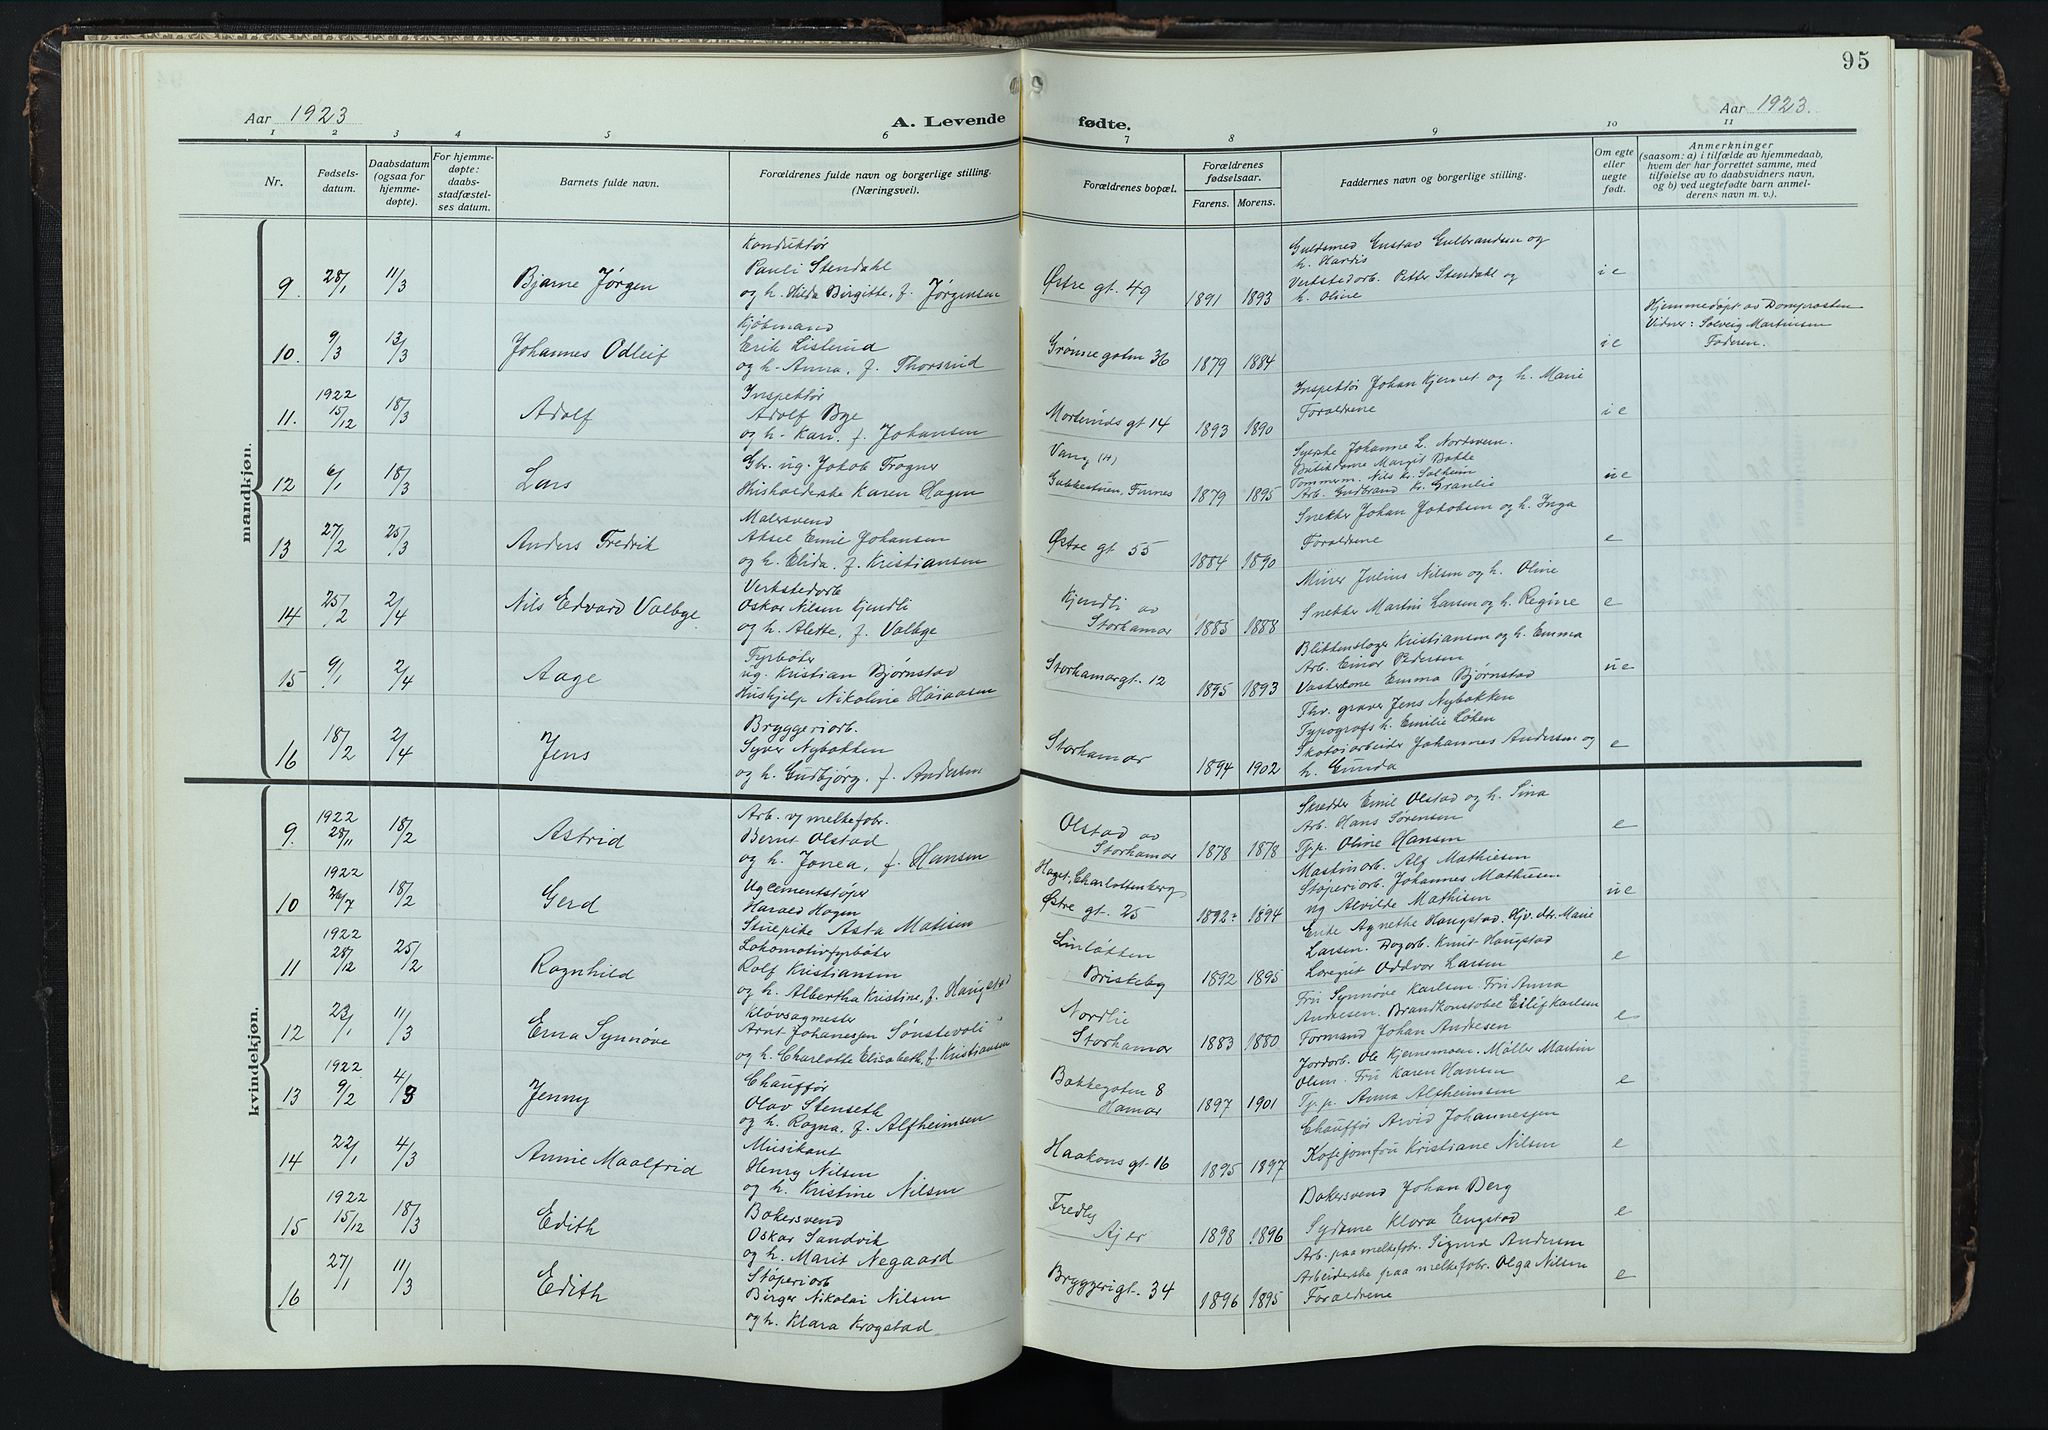 95
Aar 1923
A. Levende fødte.
Aar 1923.
1 2 3 4 5 6 7 8 9 10 11
Nr.
Fødsels-
datum.
Daabsdatum
(ogsaa for
hjemme-
døpte).
For hjemme-
døpte:
daabs-
stadfæstel-
ses datum.
Barnets fulde navn.
Forældrenes fulde navn og borgerlige stilling.
(Næringsvei).
Forældrenes bopæl.
Forældrenes
fødselsaar.
Farens. Morens.
Faddernes navn og borgerlige stilling.
Om egte
eller
uegte
født.
Anmerkninger
(saasom: a) i tilfælde av hjemmedaab,
hvem der har forrettet samme, med
tilføielse av to daabsvidners navn,
og b) ved uegtefødte barn anmel-
derens navn m. v.).
mandkjøn.
9. 28/1 11/3 Bjarne Jørgen
Konduktør
Pauli Stendahl
og h. Hilda Birgitte, f. Jørgensen
Østre gt. 49 1891 1893
Guldsmed Gustav Gulbrandsen og
h. Hardis
Verkstedarb. Petter Stendahl og
h. Oline
i e
10. 9/3 13/3 Johannes Odleif
Kjøbmand
Erik Listerud
og h. Anna, f. Thorsrud
Grønnegaten 36 1879 1884
i e
Hjemmedøpt av Domprosten
Vidner: Solveig Martinsen
Faderen.
11. 1922 15/12 18/3 Adolf
Inspektør
Adolf Bye
og h. Kari, f. Johansen
Morteruds gt 14 1893 1890
Inspektør Johan Kjernet og h. Marie
Forældrene
i e
12 6/1 18/3 Lars
Gbr. ug. Jakob Frogner
Husholderske Karen Hagen
Vang (H)
Gubbestuen, Furnes 1879 1895
Syerske Johanne L. Nordsveen.
Butikdame Margit Bakke
Tømmerm. Nils Kr. Solheim
Arb. Gudbrand Kr. Granlie
u e
13 27/2 25/3 Anders Fredrik
Malersvend
Aksel Emil Johansen
og h. Elida, f. Kristiansen
Østre gt 55 1884 1890
Snekker Johan Jakobsen og h. Inga
Forældrene
e
14 25/2 2/4 Nils Edvard Valbye
Verkstedarb
Oskar Nilsen Kjendli
og h. Alette, f. Valbye
Kjendli av
Storhamar 1885 1888
Murer Julius Nilsen og h. Oline
Snekker Martin Larsen og h. Regine
e
15 9/1 2/4 Aage
Fyrbøter
ug. Kristian Bjørnstad
Hushjelp Nikoline Haraasen
Storhamargt. 12 1895 1893
Blikkenslager Kristiansen og h. Emma
Arb. Einar Pedersen
Vaskekone Emma Bjørnstad
u e
16 18/2 2/4 Jens
Bryggeriarb.
Syver Nybakken
og h. Gudbjørg, f. Andersen
Storhamar 1894 1902
Thv. graver Jens Nybakken
Typografs h. Emilie Løken
Skotøiarbeider Johannes Andersen og
h. Gunda
e
kvindekjøn.
9. 1922 28/11 18/2 Astrid
Arb. v/ melkefabr.
Bernt Olstad
og h. Jonea, f. Hansen
Olstad av
Storhamar 1878 1878
Skredder Emil Olstad og h. Sina
Arb. Hans Sørensen
Tj.p. Oline Hansen
e
10 1922 26/7 18/2 Gerd
Ug cementstøper
Harald Hagen
Stuepike Asta Matisen
Haget, Charlottenberg
Østre gt. 25 1892 1894
Maskinarb. Alf Mathiesen
Støperiarb. Johannes Mathiesen
ug Alvilde Mathisen
u e
11 1922 28/12 25/2 Ragnhild
Lokomotivfyrbøter
Rolf Kristiansen
og h. Albertha Kristine, f. Haugstad
Linløkken
Briskeby 1892 1895
Enke Agnethe Haugstad. Hjv. dtr. Marie
Larsen. Dagarb. Knut Haugstad
Løregut Oddvar Larsen
e
12 23/1 11/3 Erna Synnøve
Kløvsagmester
Arnt Johanesen Sønstevoli
og h. Charlotte Elisabeth, f. Kristiansen
Nordlie
Storhamar 1883 1880
Fru Synnøve Karlsen. Fru Anna
Andresen. Brandkonstabel Eilif Karlsen
Formand Johan Andresen
e
13 1922 9/2 4/3 Jenny
Chauffør
Olav Stenseth
og h. Ragna, f. Alfheimsen
Bakkegaten 8
Hamar 1897 1901
Jordarb. Ole Kjernemoen. Møller Martin
Olsen. Fru Karen Hansen
Tj. p. Anna Alfheimsen
e
14 22/1 4/3 Annie Maalfrid
Musikant
Henry Nilsen
og h. Kristine Nilsen
Haakons gt. 16 1895 1897
Chauffør Arvid Johannesen
Kafejomfru Kristiane Nilsen
e
15 1922 15/12 18/3 Edith
Bakersvend
Oskar Sandvik
og h. Marit Negaard
Fredly
Ajer 1898 1896
Bakersvend Johan Berg
Sydame Klara Engstad
e
16 27/1 11/3 Edith
Støperiarb
Birger Nikolai Nilsen
og h. Klara Krogstad
Bryggerigt. 34 1896 1895
Arb. paa melkefabr. Sigurd Andersen
Arbeiderske paa melkefabr. Olga Nilsen
Forældrene
e